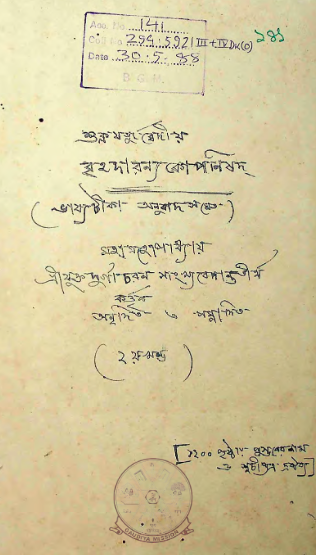 Acc. No. 141
Call No. 294.592/III+IV DK(O)
Date 30.5.88
B.G.M.
১৪১
শুক্লযজুর্ব্বেদীয়
বৃহদারণ্যকোপনিষদ্
(ভাষ্য টীকা অনুবাদ সমেত)
মহামহোপাধ্যায়
শ্রীযুক্ত দুর্গাচরণ সাংখ্যবেদান্ততীর্থ
কর্ত্তৃক
অনূদিত ও সম্পাদিত
(২য় খণ্ড)
[১২০০ পৃষ্ঠা
ও সূচীপত্র
GAUDIYA MISSION